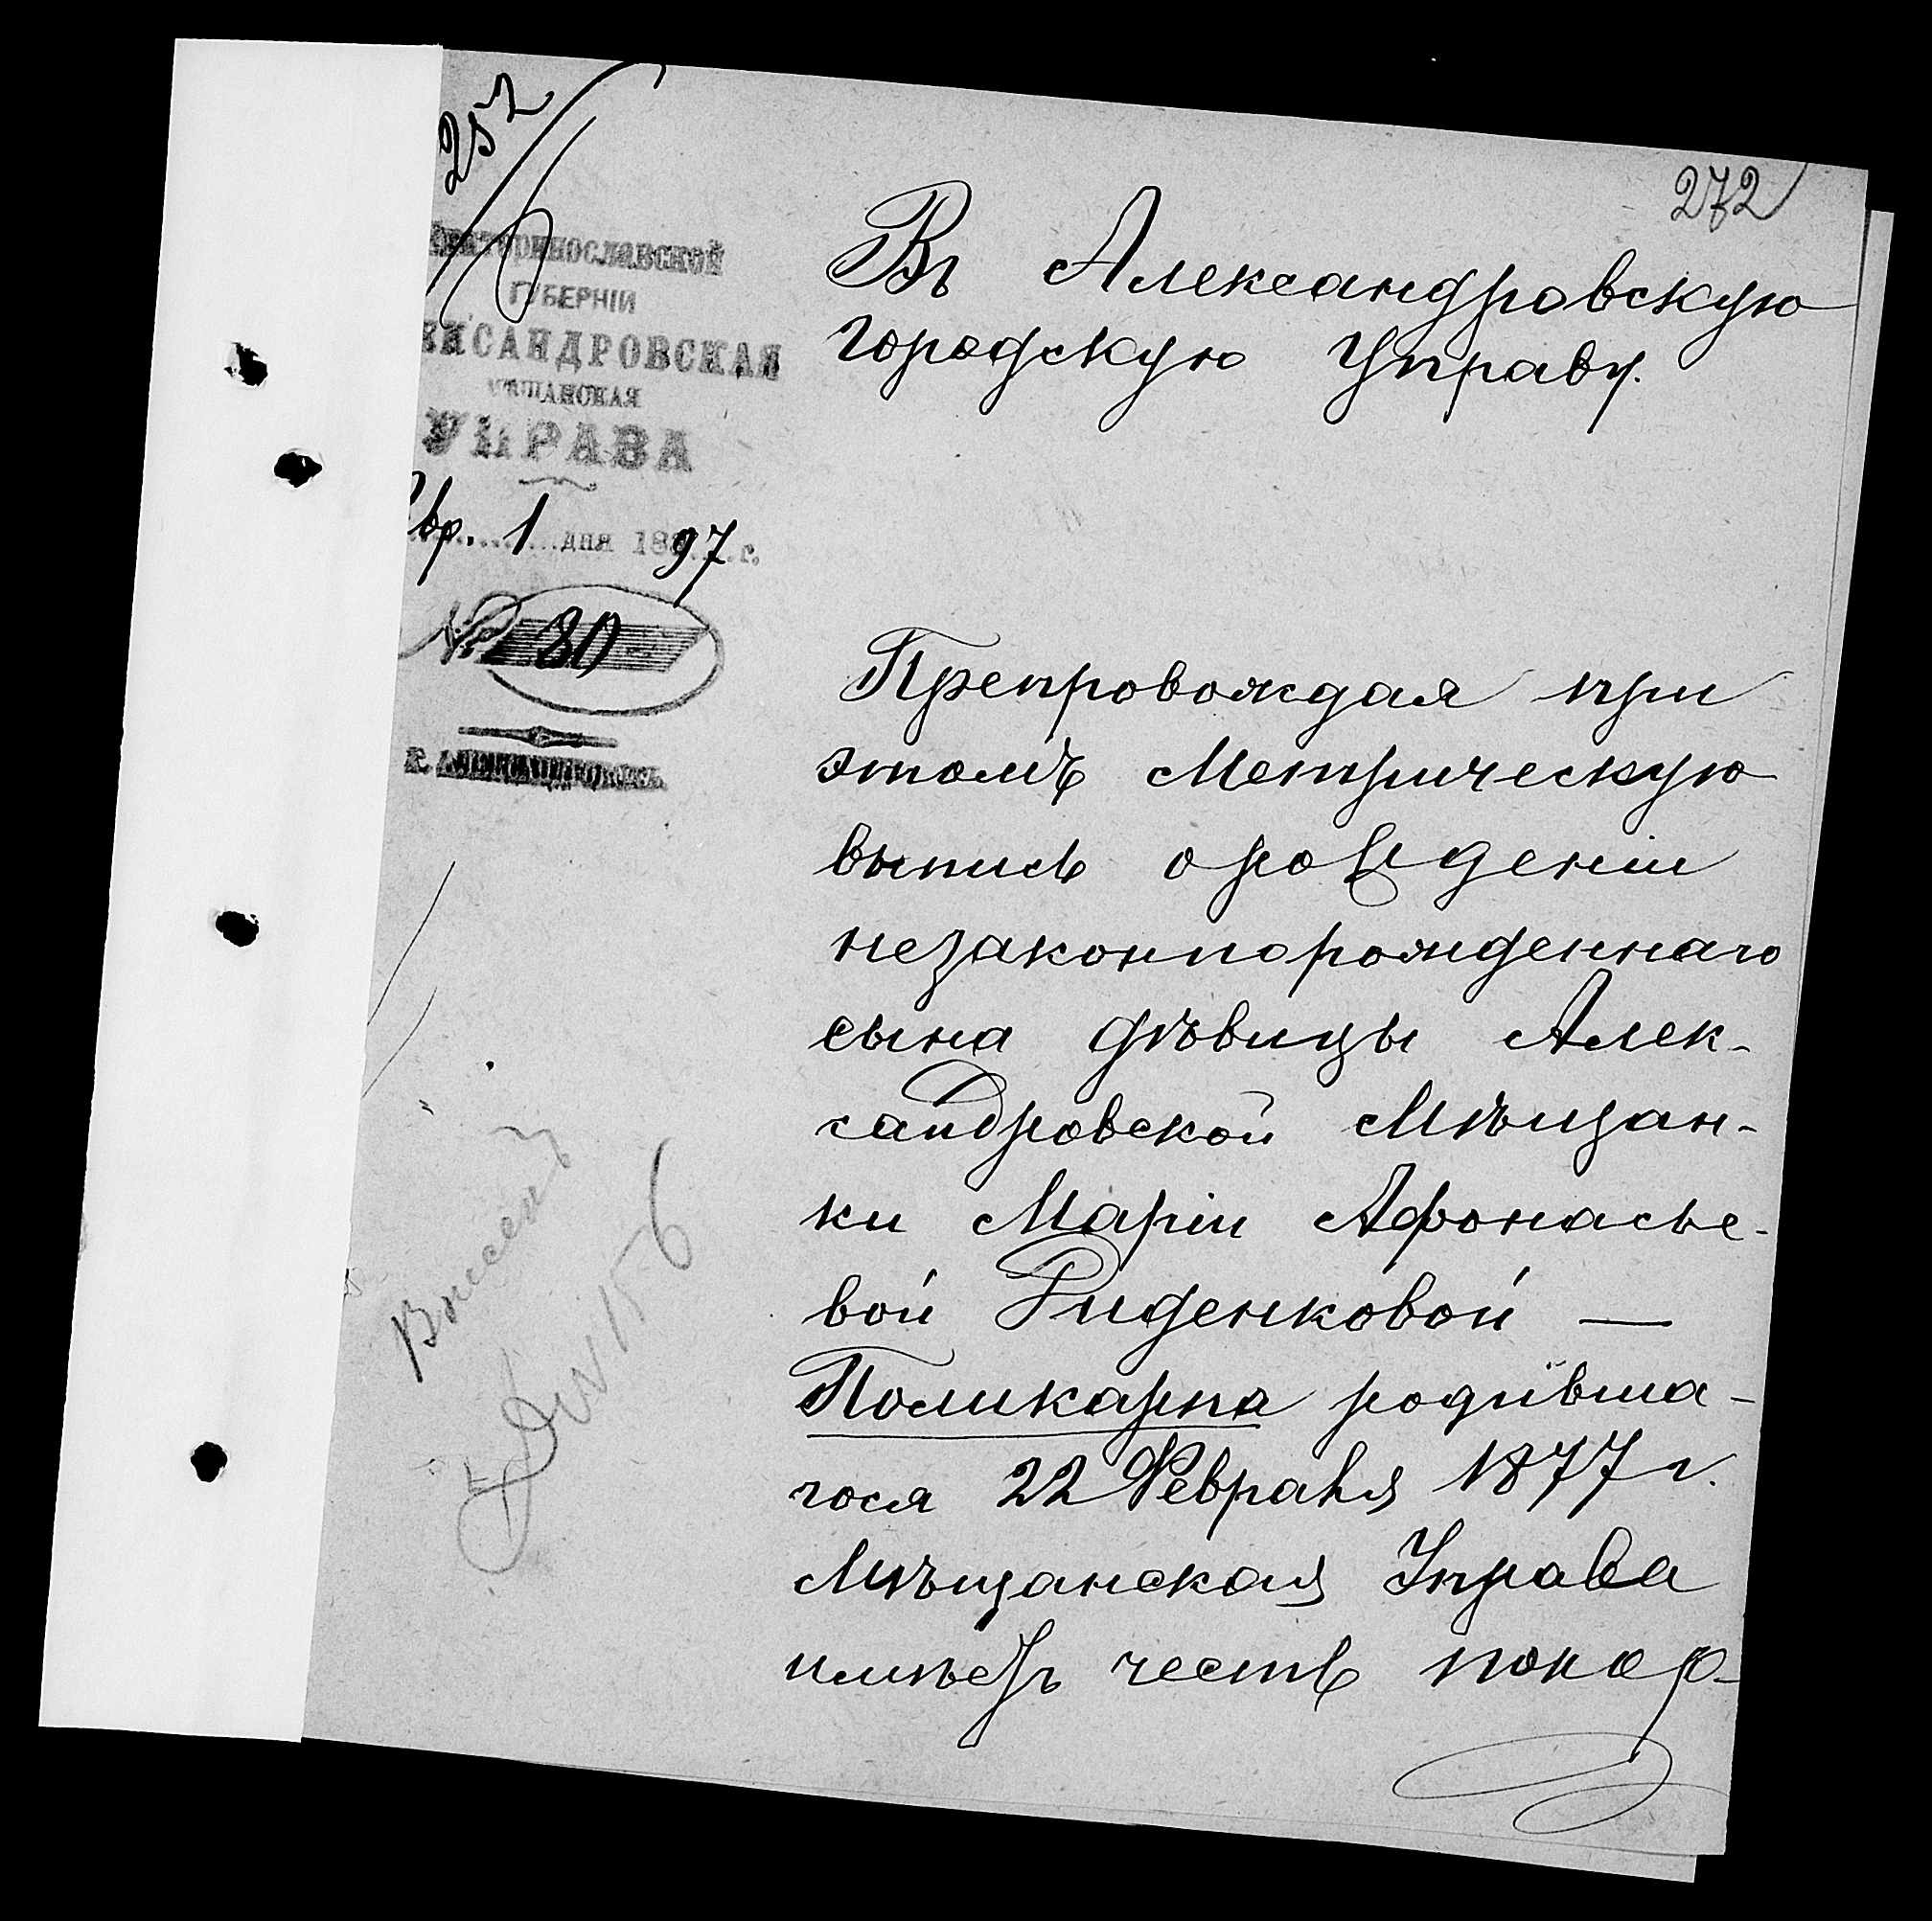 252
272
Екатеринославской
ГУБЕРНІИ
КСАНДРОВСКАЯ
ЩАНСКАЯ
УПРАВА
1 дня 1897 г.
№ 80
Въ Александровскую
городскую Управу.
Препровождая при
этомъ Метрическую
выпись о рожденіи
незаконнорожденнаго
сына дѣвицы Алек-
сандровской Мѣщан-
ки Маріи Афонасье-
вой Риденковой —
Поликарпа родивша-
гося 22 Февраля 1877 г.
Мѣщанская Управа
имѣетъ честь покор-